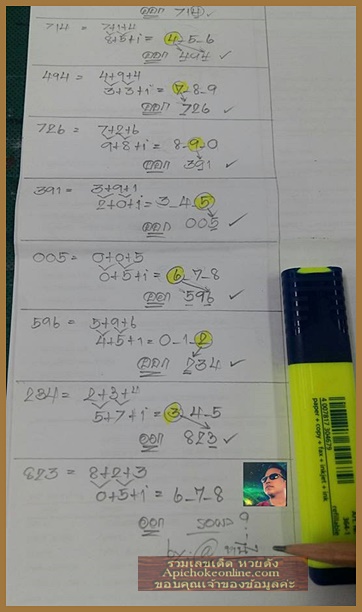 ออก 714
714 = 7+1+4
8+5+1 = 4-5-6
ออก 494 ✓
494 = 4+9+4
3+3+1 = 7-8-9
ออก 726 ✓
726 = 7+2+6
9+8+1 = 8-9-0
ออก 391 ✓
391 = 3+9+1
2+0+1 = 3-4-5
ออก 005 ✓
005 = 0+0+5
0+5+1 = 6-7-8
ออก 596 ✓
596 = 5+9+6
4+5+1 = 0-1-2
ออก 234 ✓
234 = 2+3+4
5+7+1 = 3-4-5
ออก 823 ✓
823 = 8+2+3
0+5+1 = 6-7-8
ออก รอผล ?
by. @
รวมเลขเด็ด หวยดัง
Apichokeonline.com
ขอบคุณเจ้าของข้อมูลค่ะ
4 007817 304679
paper + copy + fax + inkjet + ink
refillable
364-1